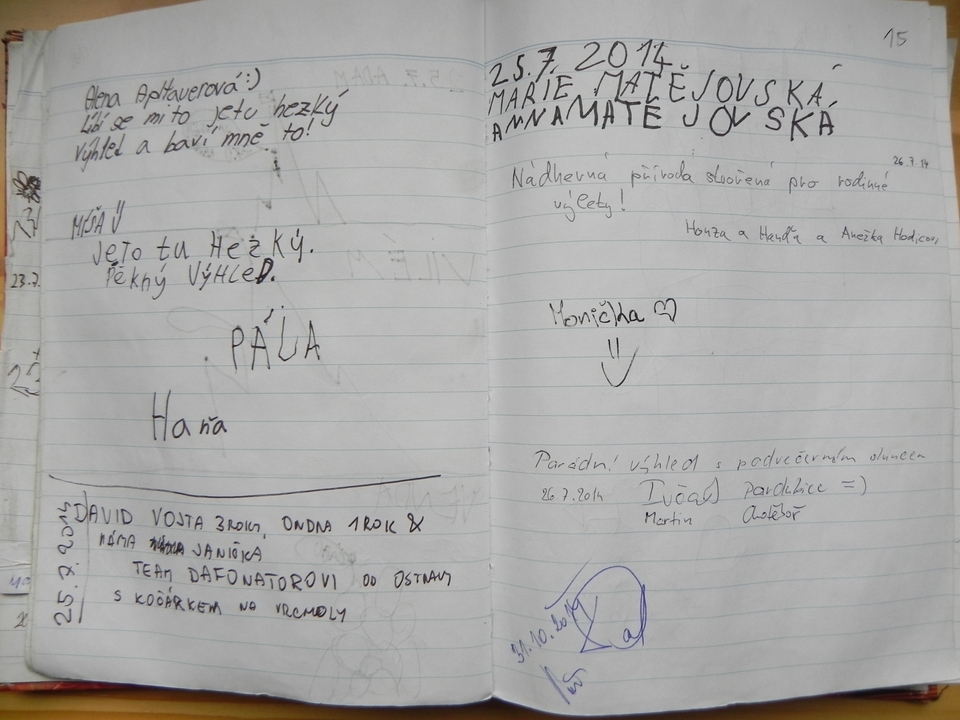 Alena Apltauerová :)
Líbí se mi to jetu hezký
výhled a baví mně to!
MÍŠA
Je To tu HeZKý.
Pěkný VýHLeD.
PÁJA
Haňa
25.7.2014
DAVID VOJTA 3 ROKY, ONDRA 1 ROK &
MÁMA JANIČKA
TEAM DAFONATOROVI OD OSTRAVY
S KOČÁRKEM NA VRCHOLY
23.7.
15
25.7. 2014
MARIE MATĚJOVSKÁ
ANNA MATĚJOVSKÁ
26.7.14
Nádherná příroda stvořená pro rodinné
výlety!
Honza a Handa a Anežka Hodicovi
Monička
Parádní výhled s podvečerním sluncem
26.7.2014 Pardubice =)
Martin Chotěboř
31.10.2014